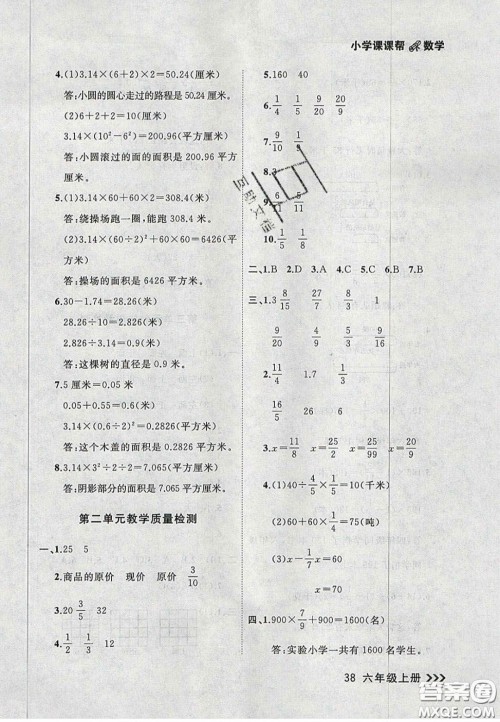 小学课课帮 数学
4.(1)3.14×(6+2)×2=50.24(厘米)
答:小圆的圆心走过的路程是50.24厘米。
(2)6+2+2=10(厘米)
3.14×(10²-6²)=200.96(平方厘米)
答:小圆滚过的面的面积是200.96平方厘米。
5.(1)3.14×60+60×2=308.4(米)
答:绕操场跑一圈,能跑308.4米。
(2)3.14×(60÷2)²+60×60=6426(平方米)
答:操场的面积是6426平方米。
6.30-1.74=28.26(米)
28.26÷10=2.826(米)
2.826÷3.14=0.9(米)
答:这棵树的直径是0.9米。
7.5厘米=0.05米
0.05+0.55=0.6(米)
3.14×(0.6÷2)²=0.2826(平方米)
答:这个木盖的面积是0.2826平方米。
8.3.14×3²÷2÷2=7.065(平方厘米)
答:阴影部分的面积是7.065平方厘米。
第二单元教学质量检测
一、1.25 5
2.商品的原价 现价 原价 3/10
3.20 3/5 32
4.1/2 1/3 12
5.160 40
6.1/4 1/5 9/20 20/9
7.9/10 1/10
8.3
9.6/11 5/11
10.1/5 1/8
二、1.B 2.D 3.A 4.C 5.B 6.D 7.B
三、1.3 8/15 27/8 1/3 1
9/20 3/4 7/8 8/9
2.7/11 1.7 1/3
16/5 26 6
3.x=11/8 x=25/2 x=25/24
4.(1)40÷4/5×1/5=10(千米)
(2)60×(1+1/4)=75(吨)
(3)x-1/7x=60
x=70
四、1.900×7/9+900=1600(名)
答:实验小学一共有1600名学生。
38 六年级上册
互助文档
答案圈
MXQE.COM